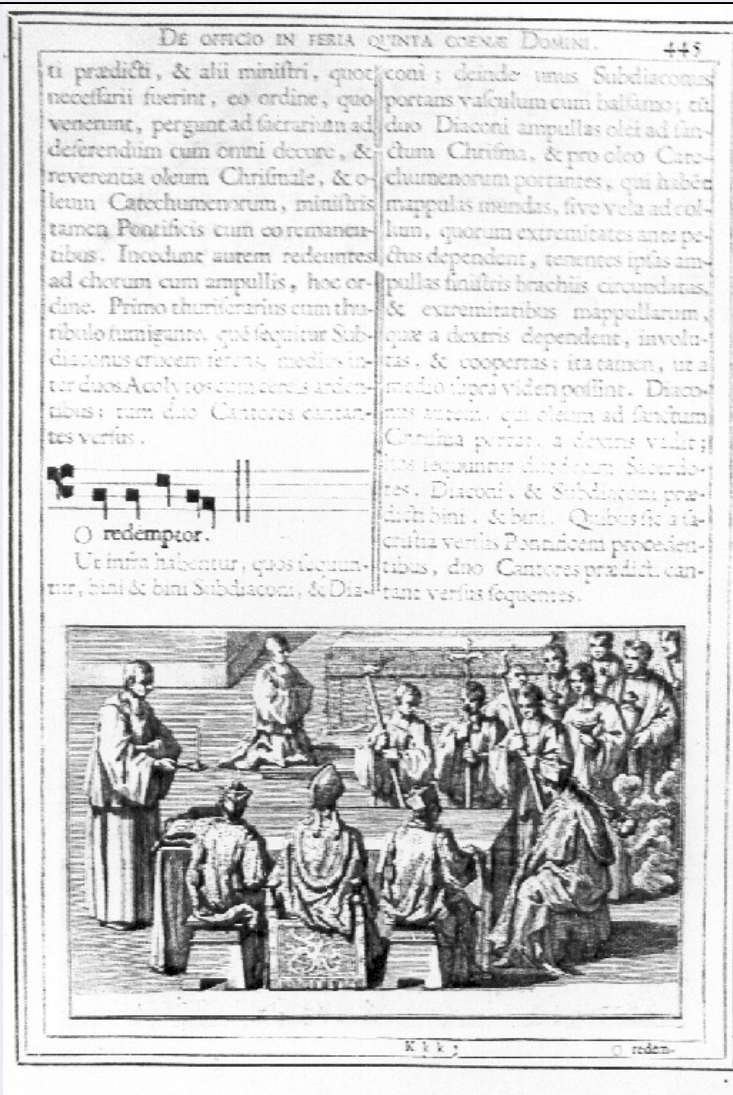 DE OFFICIO IN FERIA QUINTA COENÆ DOMINI.
445
ti prædicti, & alii miniſtri, quot
neceſſarii fuerint, eo ordine, quo
venerunt, pergunt ad ſacrarium ad
deferendum cum omni decore, &
reverentia oleum Chriſmale, & o-
leum Catechumenorum, miniſtris
tamen Pontificis cum eo remanen-
tibus. Incedunt autem redeuntes
ad chorum cum ampullis, hoc or-
dine. Primo thuriferarius cum thu-
ribulo fumigante, quē ſequitur Sub-
diaconus crucem ferens, medius in-
ter duos Acolytos cum cereis arden-
tibus; tum duo Cantores cantan-
tes verſus.
O redémptor.
Ut infra habentur, quos ſequun-
tur, bini & bini Subdiaconi, & Dia-
coni; deinde unus Subdiaconus
portans vaſculum cum balſamo; tū
duo Diaconi ampullas olei ad ſan-
ctum Chriſma, & pro oleo Cate-
chumenorum portantes, qui habēt
mappulas mundas, ſive vela ad col-
lum, quorum extremitates ante pe-
ctus dependent, tenentes ipſas am-
pullas ſiniſtris brachiis circundatas,
& extremitatibus mappullarum,
quæ a dextris dependent, involu-
tas, & coopertas; ita tamen, ut a
medio ſupra videri poſſint. Diaco-
nus autem, qui oleum ad ſanctum
Chriſma portat, a dextris vadit;
hos ſequuntur duodecim Sacerdo-
tes, Diaconi, & Subdiaconi præ-
dicti bini, & bini. Quibus ſic a ſa-
criſtia verſus Pontificem proceden-
tibus, duo Cantores prædicti can-
tant verſus ſequentes.
K k k
O redem-